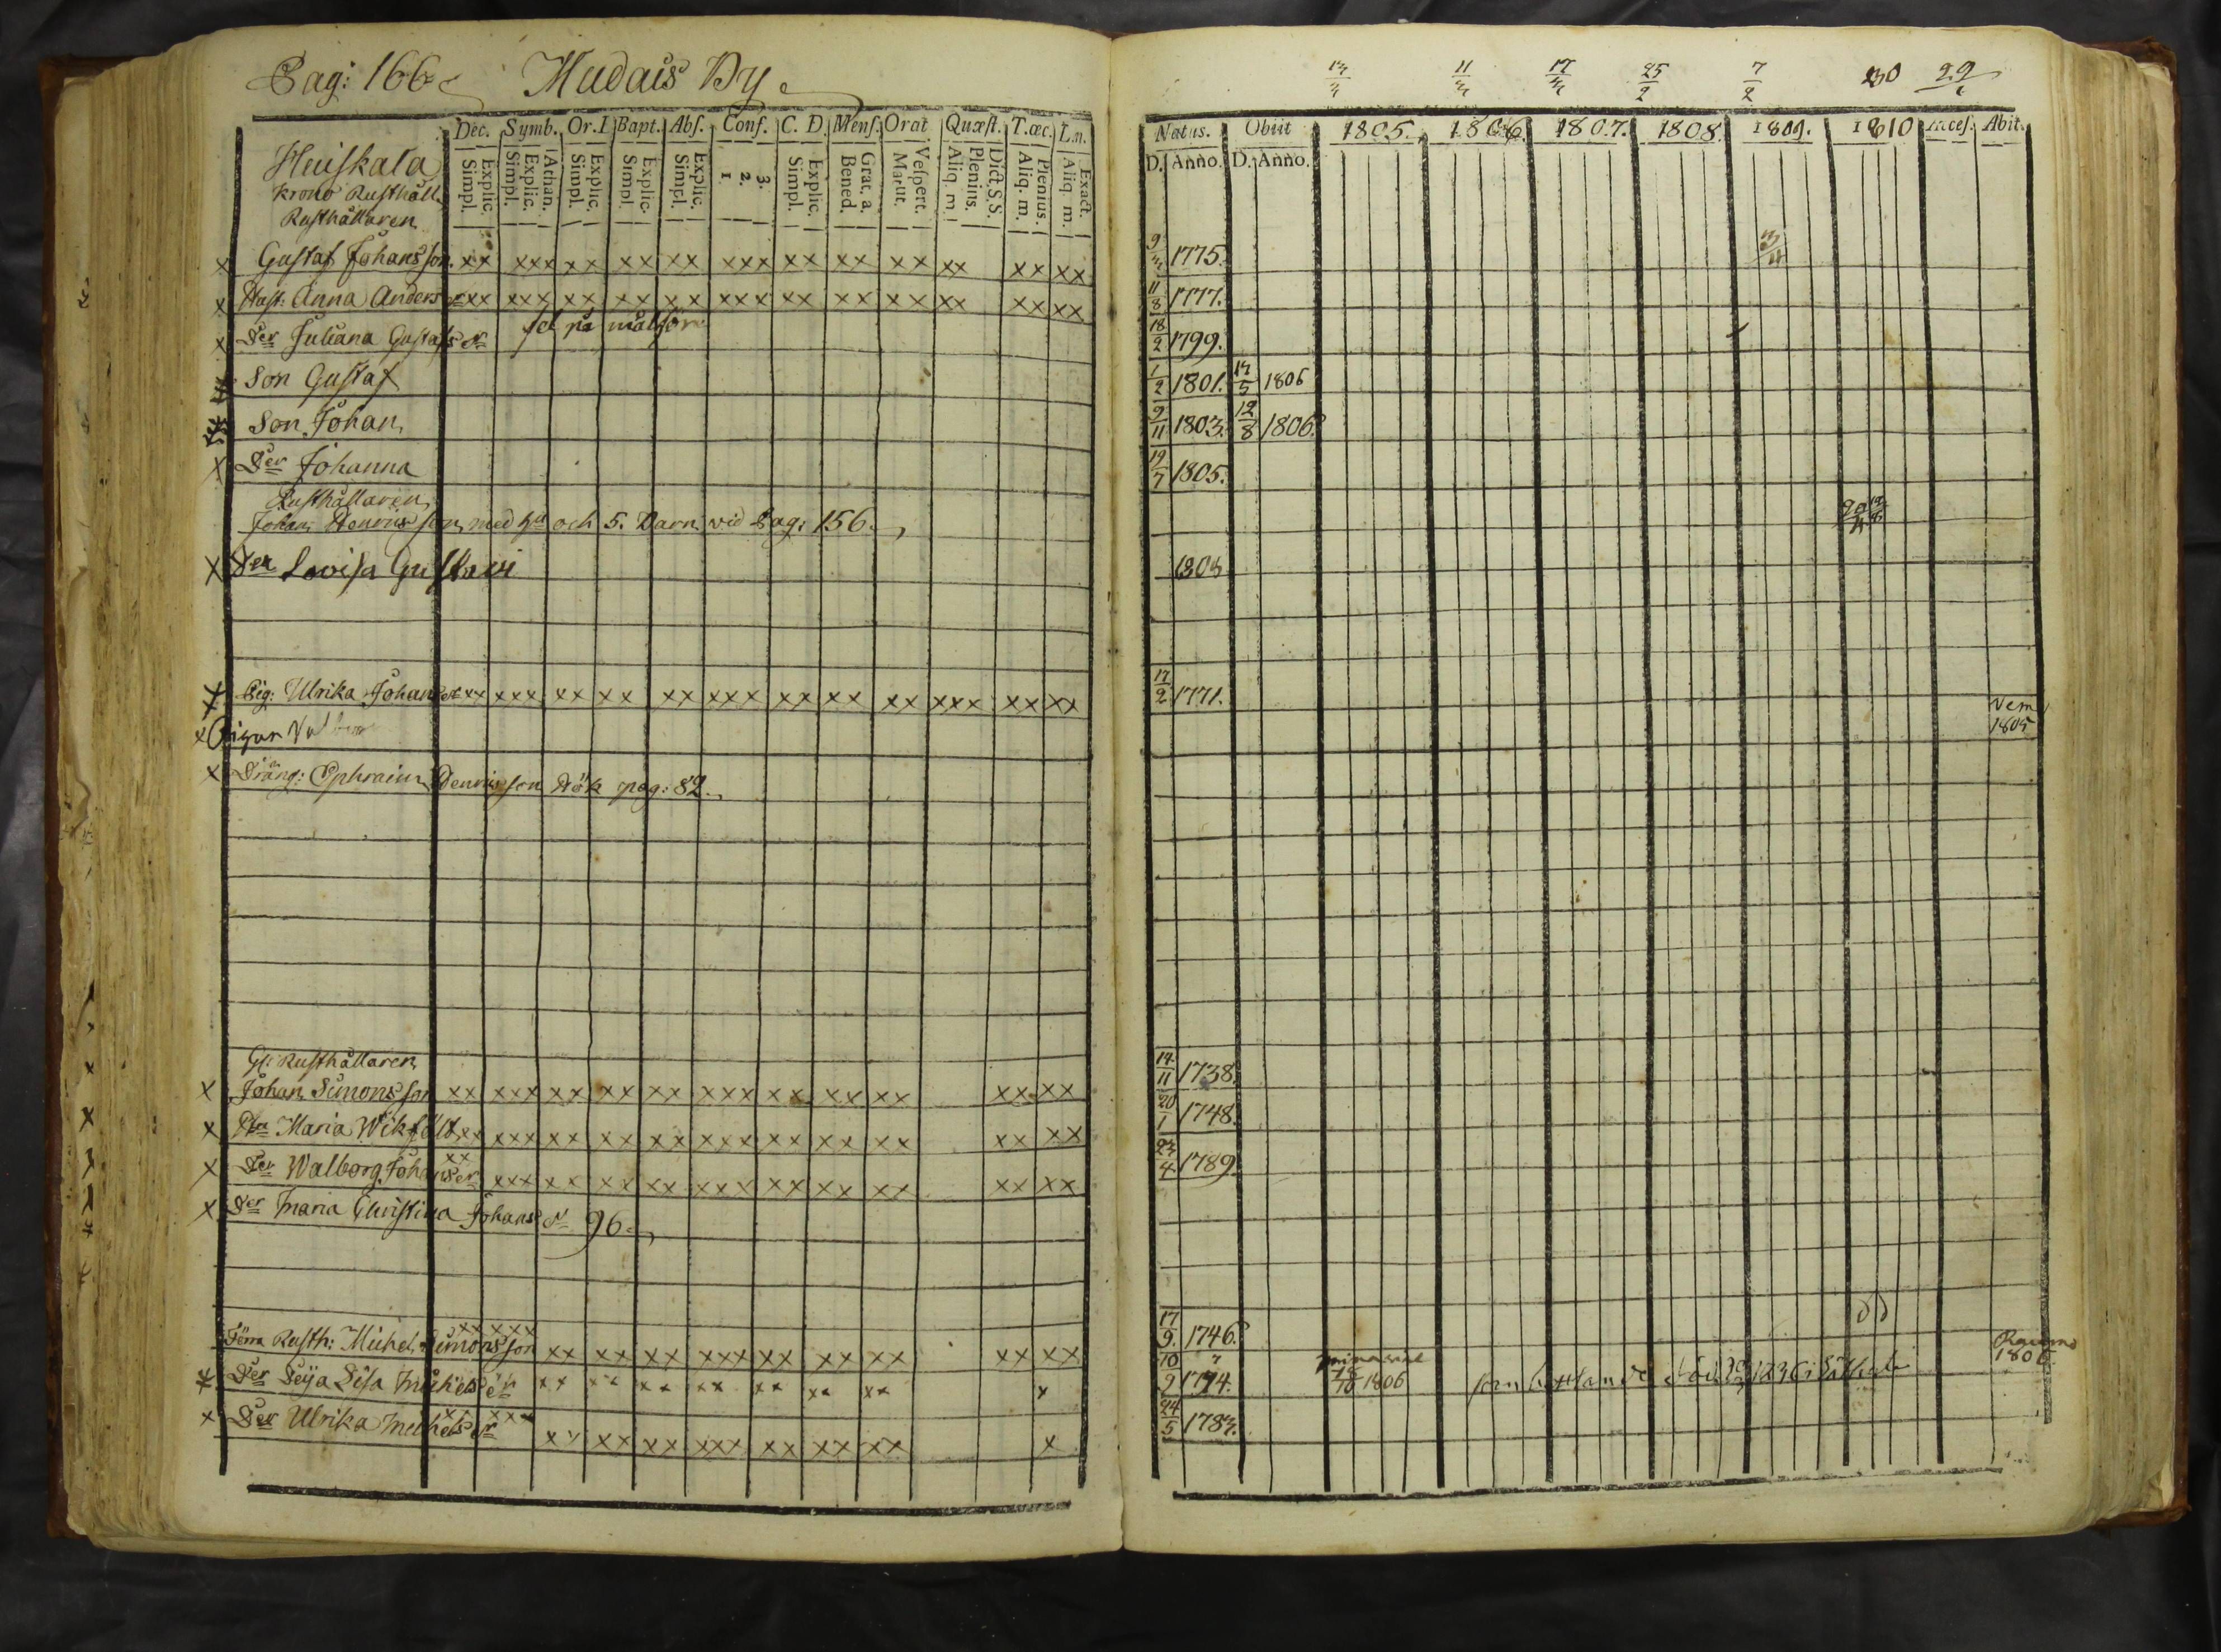 Pag: 166 Hudais By
Dec. Symb. Or. D. Bapt. Abs. Conf. C. D. Mens. Orat Quæst. T. œc. L. n.
Explic. Simpl. Athan. Explic. Simpl. Explic. Simpl. Explic. Simpl. Explic. Simpl. 3. 2. 1. Explic. Simpl. Grat. a. Bened. Vespert. Matut. Dict. S.S. Plenius. Aliq. m. Plenius. Aliq. m. Exact. Aliq. m.
Huiskala
Krono Rusthåll
Rusthållaren
x Gustaf Johansson xx xxx xx xx xx xxx xx xx xx xx xx xx
x Hust: Anna Anders xxx xxx xx xx xx xxx xx xx xx xx xx xx
x Dr Juliana Gustafs dr fel på målföre
Son Gustaf
Son Johan
x Dr Johanna
Rusthållaren
Johan Henricsson med Hu och 5. Barn vid Pag: 156.
x Dr Lovisa Gustavi
x Pig: Ulrika Johans dr xx xxx xx xx xx xxx xx xx xx xxx xx xx
x Pigan
x Dräng: Ephraim Henricsson Höck pag: 82.
Gl: Rusthållaren
x Johan Simonsson xx xxx xx xx xx xxx xx xx xx xx xx
x Hu Maria Wikfeldt xx xxx xx xx xx xxx xx xx xx xx xx
x Dr Walborg Johans dr xx xxx xx xx xx xxx xx xx xx xx xx
x Dr Maria Christina Johans dr 96.
Förra Rusth: Michel Simonsson xx xxx xx xx xx xxx xx xx xx xx xx
x Dr Lisa Michels dr xx xx xx xx xx xx xx x
x Dr Ulrika Michels dr xx xxx xx xx xx xxx xx xx xx x
13/3 11/3 17/3 25/2 7/2 30 29
Natus. Obiit 1805. 1806. 1807. 1808. 1809. 1810 Acces. Abit.
D. Anno. D. Anno.
9/3 1775.
11/8 1777.
18/2 1799.
1/2 1801. 13/5 1806
9/11 1803. 12/8 1806.
19/7 1805.
1803
17/2 1771. Vem 1805
14/11 1738.
20/1 1748.
23/4 1789.
17/9 1746.
10/9 1774. 1806 1806
24/5 1783.